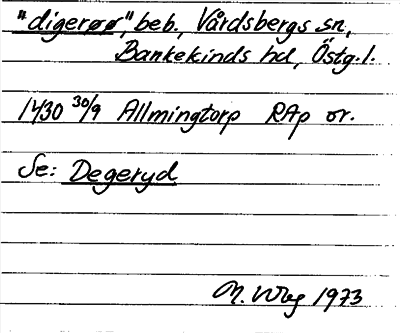 "digerøø", beb., Vårdsbergs sn,
Bankekinds hd, Östg.l.
1430 30/9 Allmingtorp RAp or.
Se: Degeryd
1973